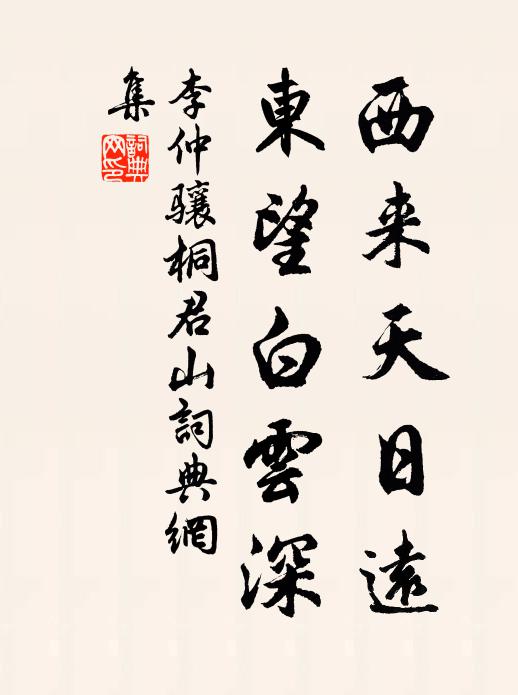 西来天日遠
東望白雲深
李仲骧桐君山詞典網
集
詞典网印